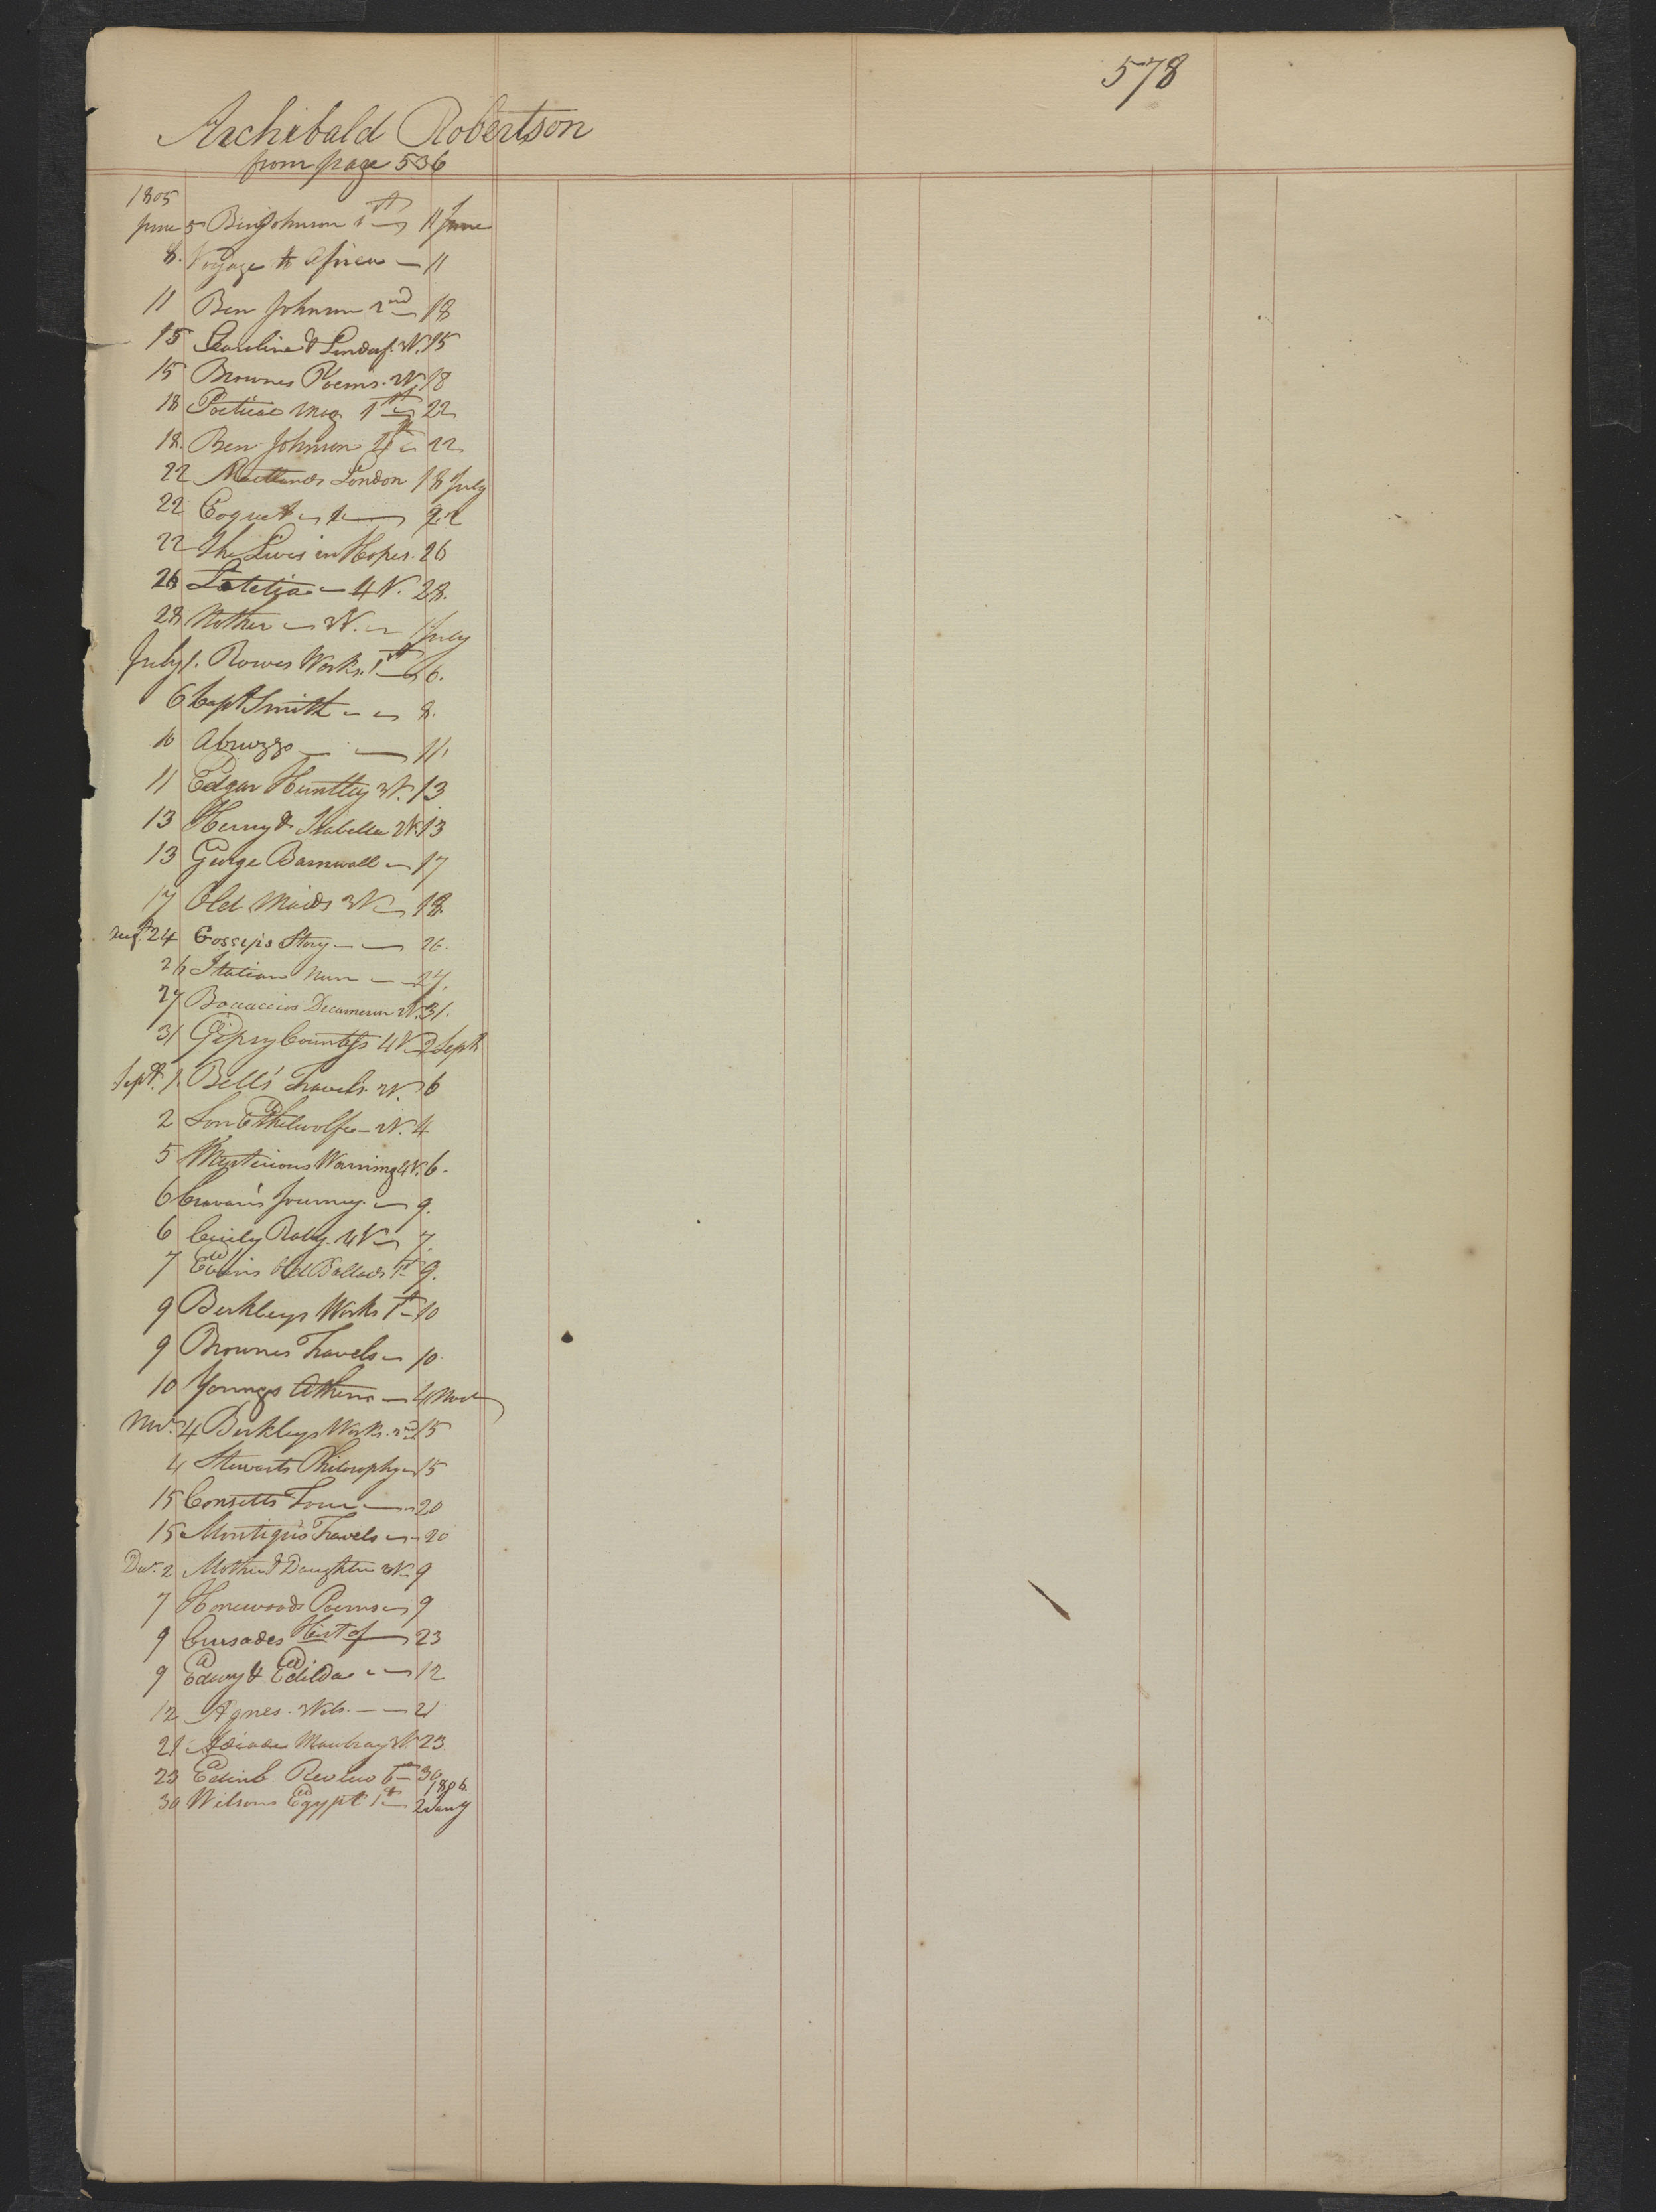 578
Archibald Robertson
from page 536
1805
June 5 Ben Johnson 1st 11 June
8. Voyage to Africa — 11
11 Ben Johnson 2nd 18
15 & Lindorf. 2V. 15
15 Brownes Poems. 2V. 18
18 Poetical Mag 1st 22
18. Ben Johnson 4th 22
22 Maitlands London 18 July
22 Coquet 22
22 She Lives in Hopes. 26
26 Letetia — 4 V. 28.
28 Mother — 3V. — 1 July
July 1. Rowes Works. 1st 6.
6 Capt Smith — 8.
10 Abruzzo — 11.
11 Edgar Huntley 3V. 13
13 Henry & Isabella 2V. 13
13 George Barnwall — 17
17 Old Maids 3V — 18.
Augt. 24 Gossip's Story — 26.
26 Italian Nun — 27.
27 Bocaccios Decameron 2V. 31.
31 Gipsy Countess 4V — 2 Sept
Sept. 1. Bell's Travels. 2V. 6
2 Son Ethelwolfe — 2V. 4
5 Mysterious Warning 4V. 6.
6 Cravan's Journey. — 9.
6 Cicily Raby. 4V — 7.
7 Evans Old Ballads 1st 9.
9 Berkleys Works 1st 10
9 Brownes Travels — 10.
10 Youngs Athens — 4 Nov
Nov. 4 Berkleys Works. 2nd 15
4 Stewarts Philosophy — 15
15 Consetts Tour — 20
15 Montique's Travels — 20
Decr. 2 Mother & Daughter 3V — 9
7 Honewoods Poems — 9
9 Cursades Hist of — 23
9 Edwy & Edilda — 12
12 Agnes. 3Vols. — 21
21 Mowbray 2V. 23.
23 Edinb. Review 6th — 30
1806
30 Wilsons Egypt 1st 2 Jany